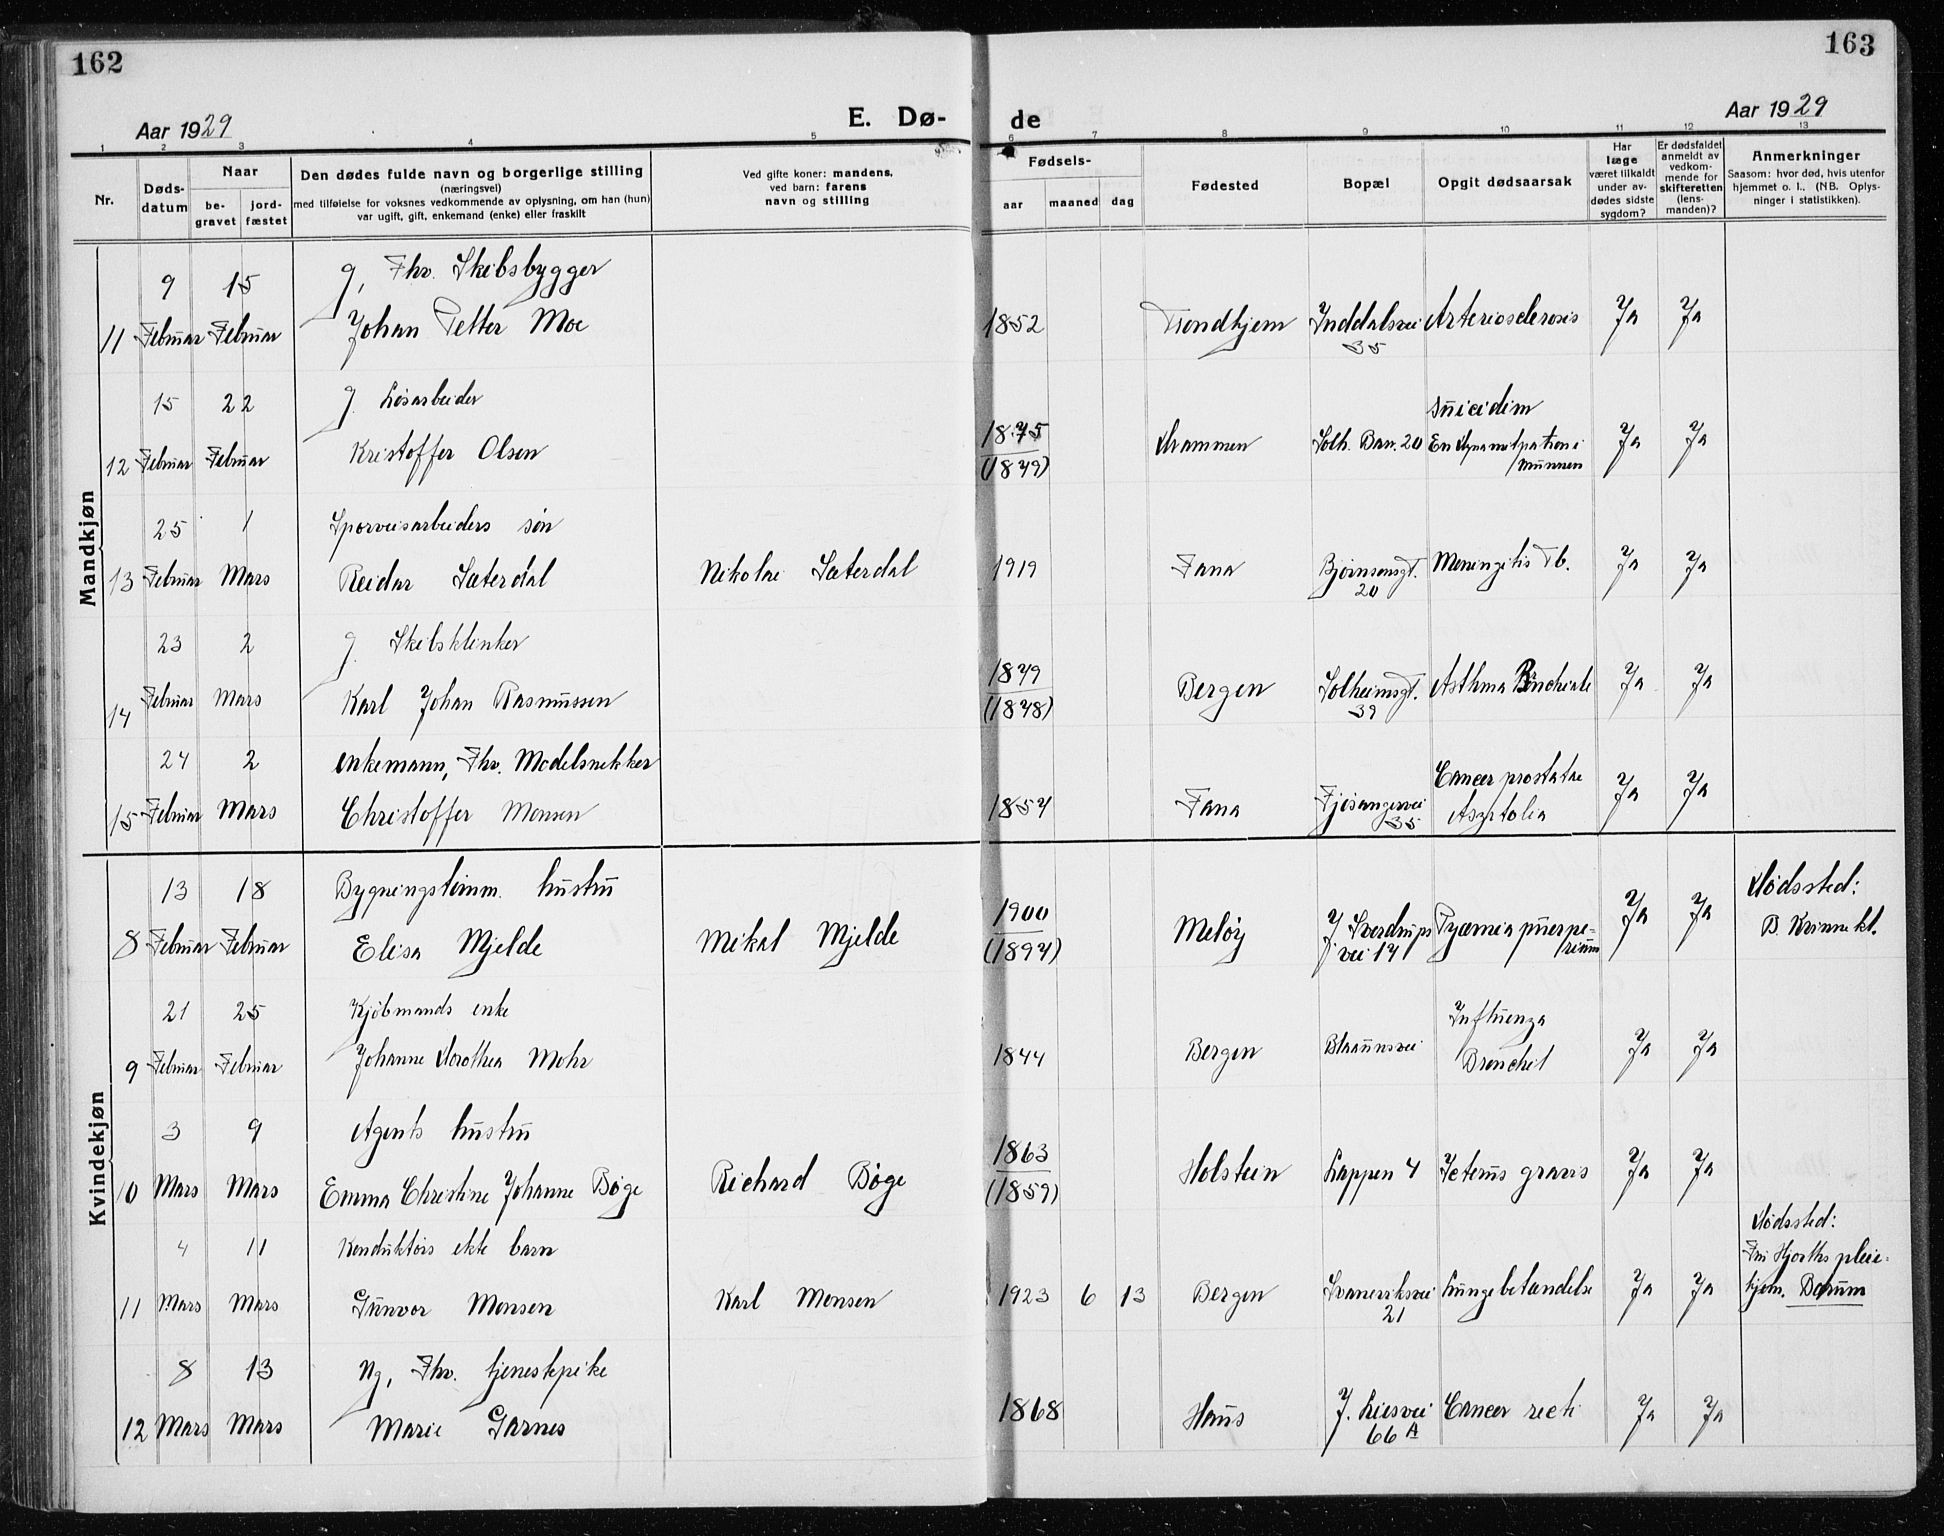 162
163
Aar 1929
E. Dø-
de
Aar 1929
1 2 3 4 5 6 7 8 9 10 11 12 13
Nr.
Døds-
datum
Naar
be-
gravet
jord-
fæstet
Den dødes fulde navn og borgerlige stilling
(næringsvei)
med tilføielse for voksnes vedkommende av oplysning, om han (hun)
var ugift, gift, enkemand (enke) eller fraskilt
Ved gifte koner: mandens,
ved barn: farens
navn og stilling
Fødsels-
aar
maaned
dag
Fødested
Bopæl
Opgit dødsaarsak
Har
læge
været tilkaldt
under av-
dødes sidste
sygdom?
Er dødsfaldet
anmeldt av
vedkom-
mende for
skifteretten
(lens-
manden)?
Anmerkninger
Saasom: hvor død, hvis utenfor
hjemmet o. l., (NB. Oplys-
ninger i statistikken).
Mandkjøn
9 15 g, Fhv. Skibsbygger
11 Februar Februar Johan Petter Moe 1852 Trondhjem Inddalsvei Arteriosclerosis Ja Ja
35
15 22 g. Løsarbeider Suicidium
12 Februar Februar Kristoffer Olsen 1875 Drammen Solh. Bar. 20 En dynamitpatron i Ja Ja
(1879) munnen
25 1 Sporveisarbeiders søn
13 Februar Mars Reidar Sæterdal Nikolai Sæterdal 1919 Fana Bjørnsonsgt. Meningitis Tb. Ja Ja
20
23 2 g. Skibsklinker
14 Februar Mars Karl Johan Rasmussen 1879 Bergen Solheimsgt. Asthma Bronchiale Ja Ja
(1878) 39
24 2 enkemann, Fhv. Modelsnekker Cancer prostatae
15 Februar Mars Christoffer Monsen 1854 Fana Fjøsangervei Asystolia Ja Ja
35
Kvindekjøn
13 18 Bygningstømm. hustru Dødssted:
8 Februar Februar Elisa Mjelde Mikal Mjelde 1900 Meløy J. Sverdrups Pyæmia puerpe- Ja Ja B. Kvinnekl.
(1894) vei 14 rium
21 25 Kjøbmands enke Influenza
9 Februar Februar Johanne Dorothea Mohr 1844 Bergen Blaaunsvei Bronchit Ja Ja
3 9 Agents hustru
10 Mars Mars Emma Christine Johanne Bøge Richard Bøge 1863 Holstein Lappen 4 Icterus gravis Ja Ja
(1859)
4 11 Konduktørs ekte barn Dødssted:
Fru Hjorths pleie-
11 Mars Mars Gunvor Monsen Karl Monsen 1923 6 13 Bergen Svaneviksvei Lungebetændelse Ja Ja hjem. Bærum
21
8 13 Ug, Fhv. tjenestepike
12 Mars Mars Marie Garnes 1868 Haus J. Liesvei Cancer recti Ja Ja
66 A